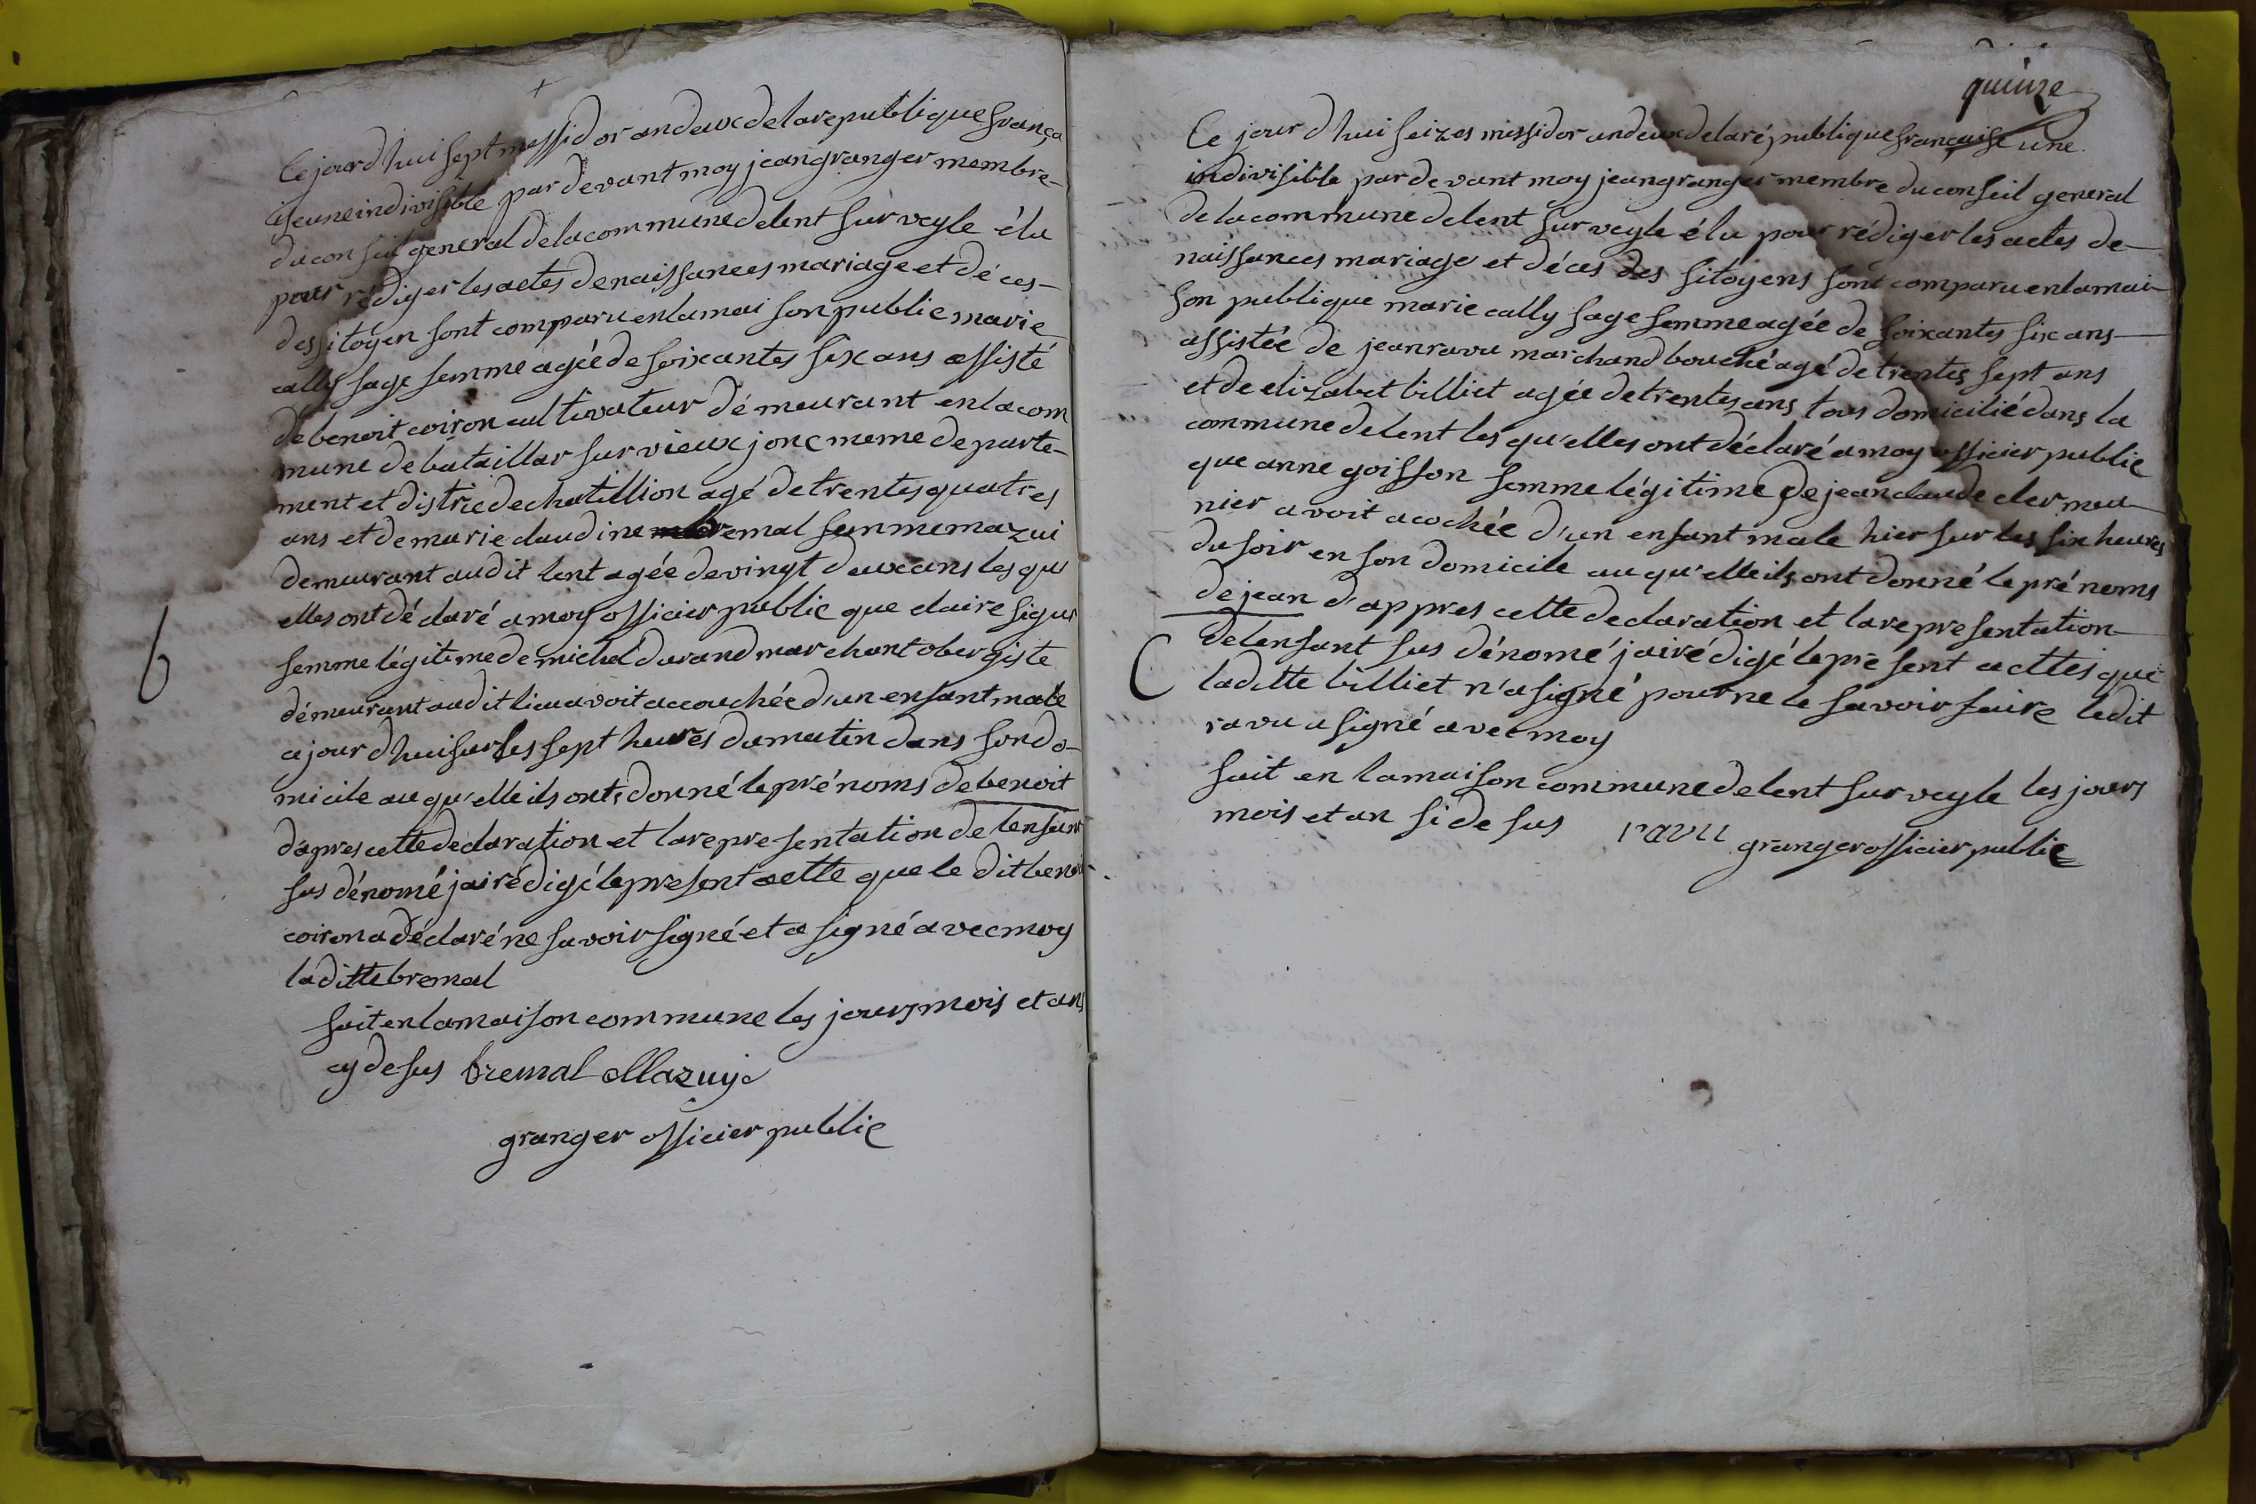 Ce jourd'hui sept messidor an deux de la republique frança
ise une indivisible par devant moy jean granger membre
du conseil general de la commune de lent sur veyle élu
pour rédiger les actes de naissances mariage et déces
des sitoyen sont comparu en la maison public marie
cally sage femme agée de soixantes six ans assisté
de benoit coiron cultivateur démeurant en la com
mune de bataillar sur vieux jonc meme departe-
ment et distric de chatillion agé de trentes quatres
ans et de marie claudine bremal femme mazui
demeurant audit lent agée de vingt deux ans lesqu
elles ont déclaré a moy officier public que claire
femme légitime de michel durand marchant obergiste
démeurant audit lieu avoit accouchée d'un enfant male
ajourd'hui sur les sept heures du matin dans son do-
micile auqu'elle ils onts donné le pré noms de benoit
d'apres cette declaration et la representation de l'enfant
sus dénomé jai rédigé le present actte que le dit benoi
coiron a déclaré ne savoir signé et a signé avec moy
la ditte bremal
fait en la maison commune les jours mois et ans
cy desus bremal Mazuy
granger officier public
6
quinze
Ce jour d'hui seizes missidor an deux de la république française une
indivisible par devant moy jean granger membre du conseil general
de la commune de lent sur veyle élu pour rédiger les actes de
naissances mariage et déces des sitoyens sont comparu en la mai-
son publique marie cally sage femme agée de soixantes six ans
assistée de jean ravu marchand bouché agé de trentes sept ans
et de elizabet billiet agée de trentes ans tous domicilié dans la
commune de lent les qu'elles ont déclaré a moy officier public
que anne goisson femme légitime de jean claude cler meu
nier avoit acochée d'un enfant male hier sur les six heures
du soir en son domicile auqu'elle ils ont donné le pré noms
de jean d'appres cette declaration et la representation
de lenfant sus dénomé jai rédigé le présent acttes que
C
laditte billiet n'a signé pour ne le savoir faire ledit
ravu a signé avec moy
fait en la maison commune de lent sur veyle les jours
mois et an si desus ravu granger officier public